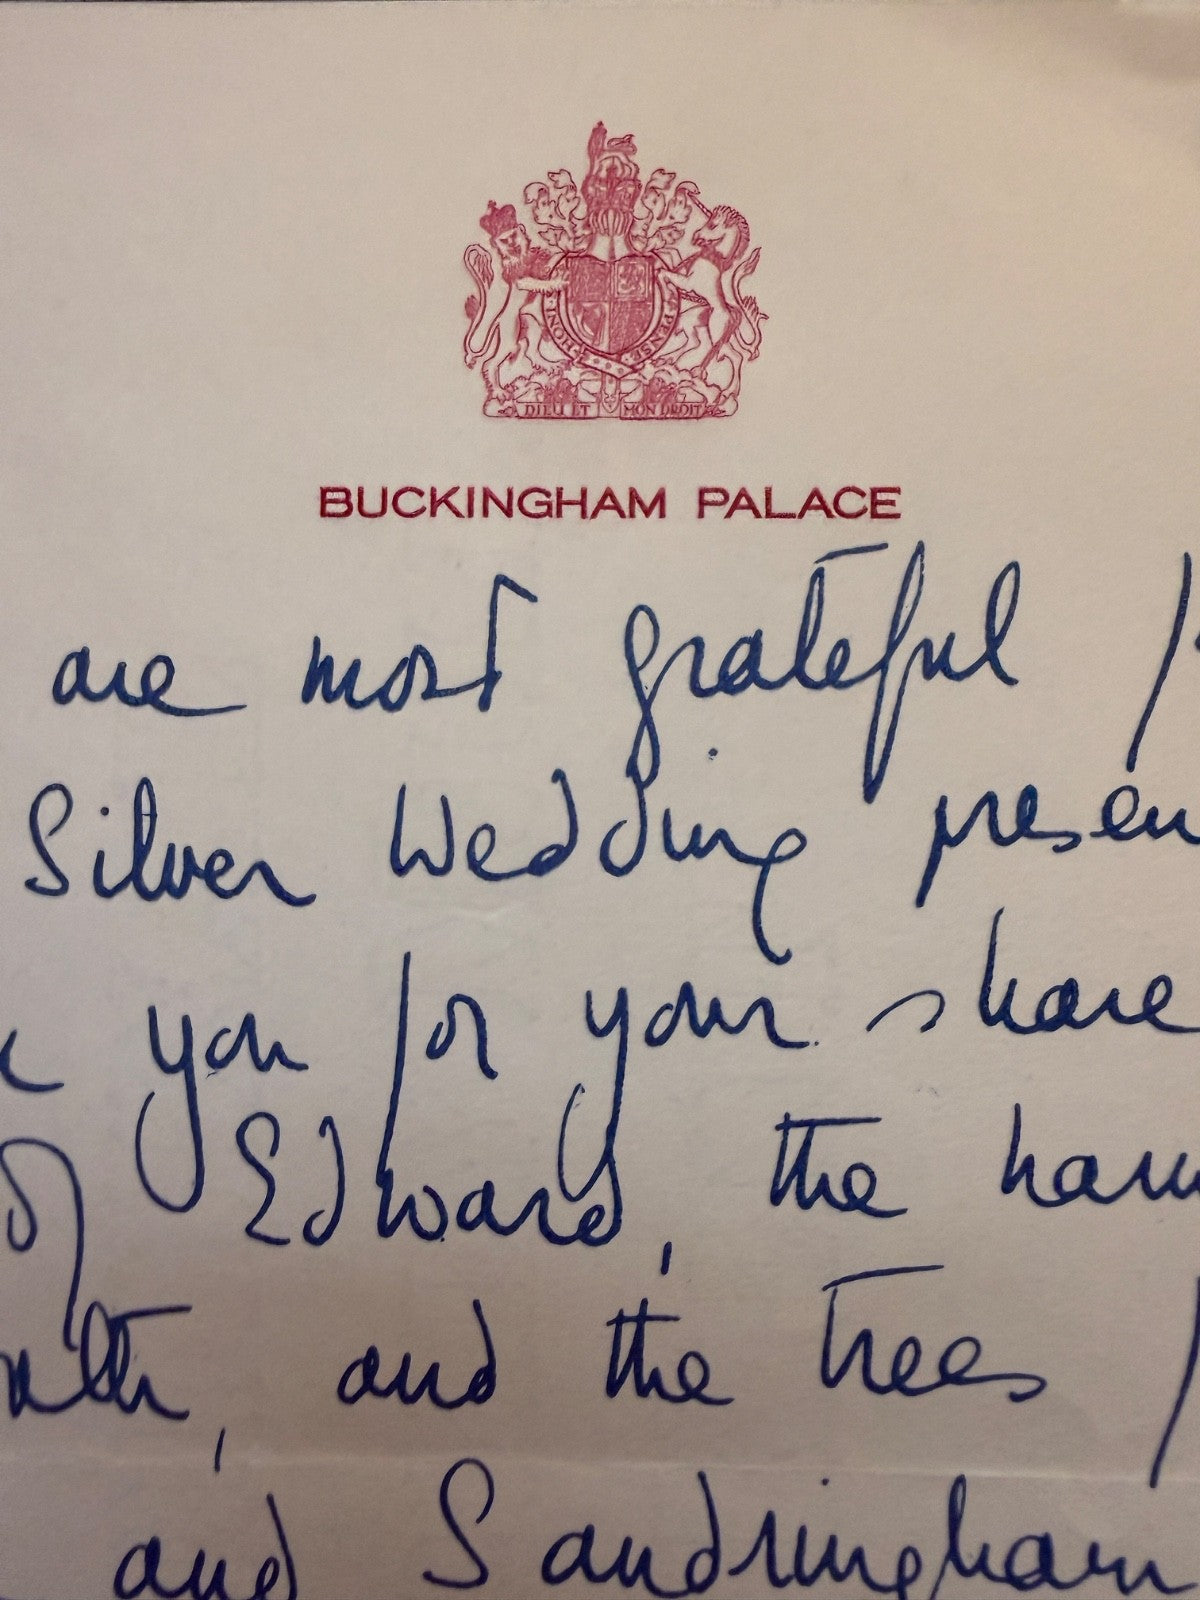 HONI PENSE
DIEU ET MON DROIT
BUCKINGHAM PALACE
are most grateful
Silver Wedding presen
you for your share
of Edward, the
and the trees
and Sandringham